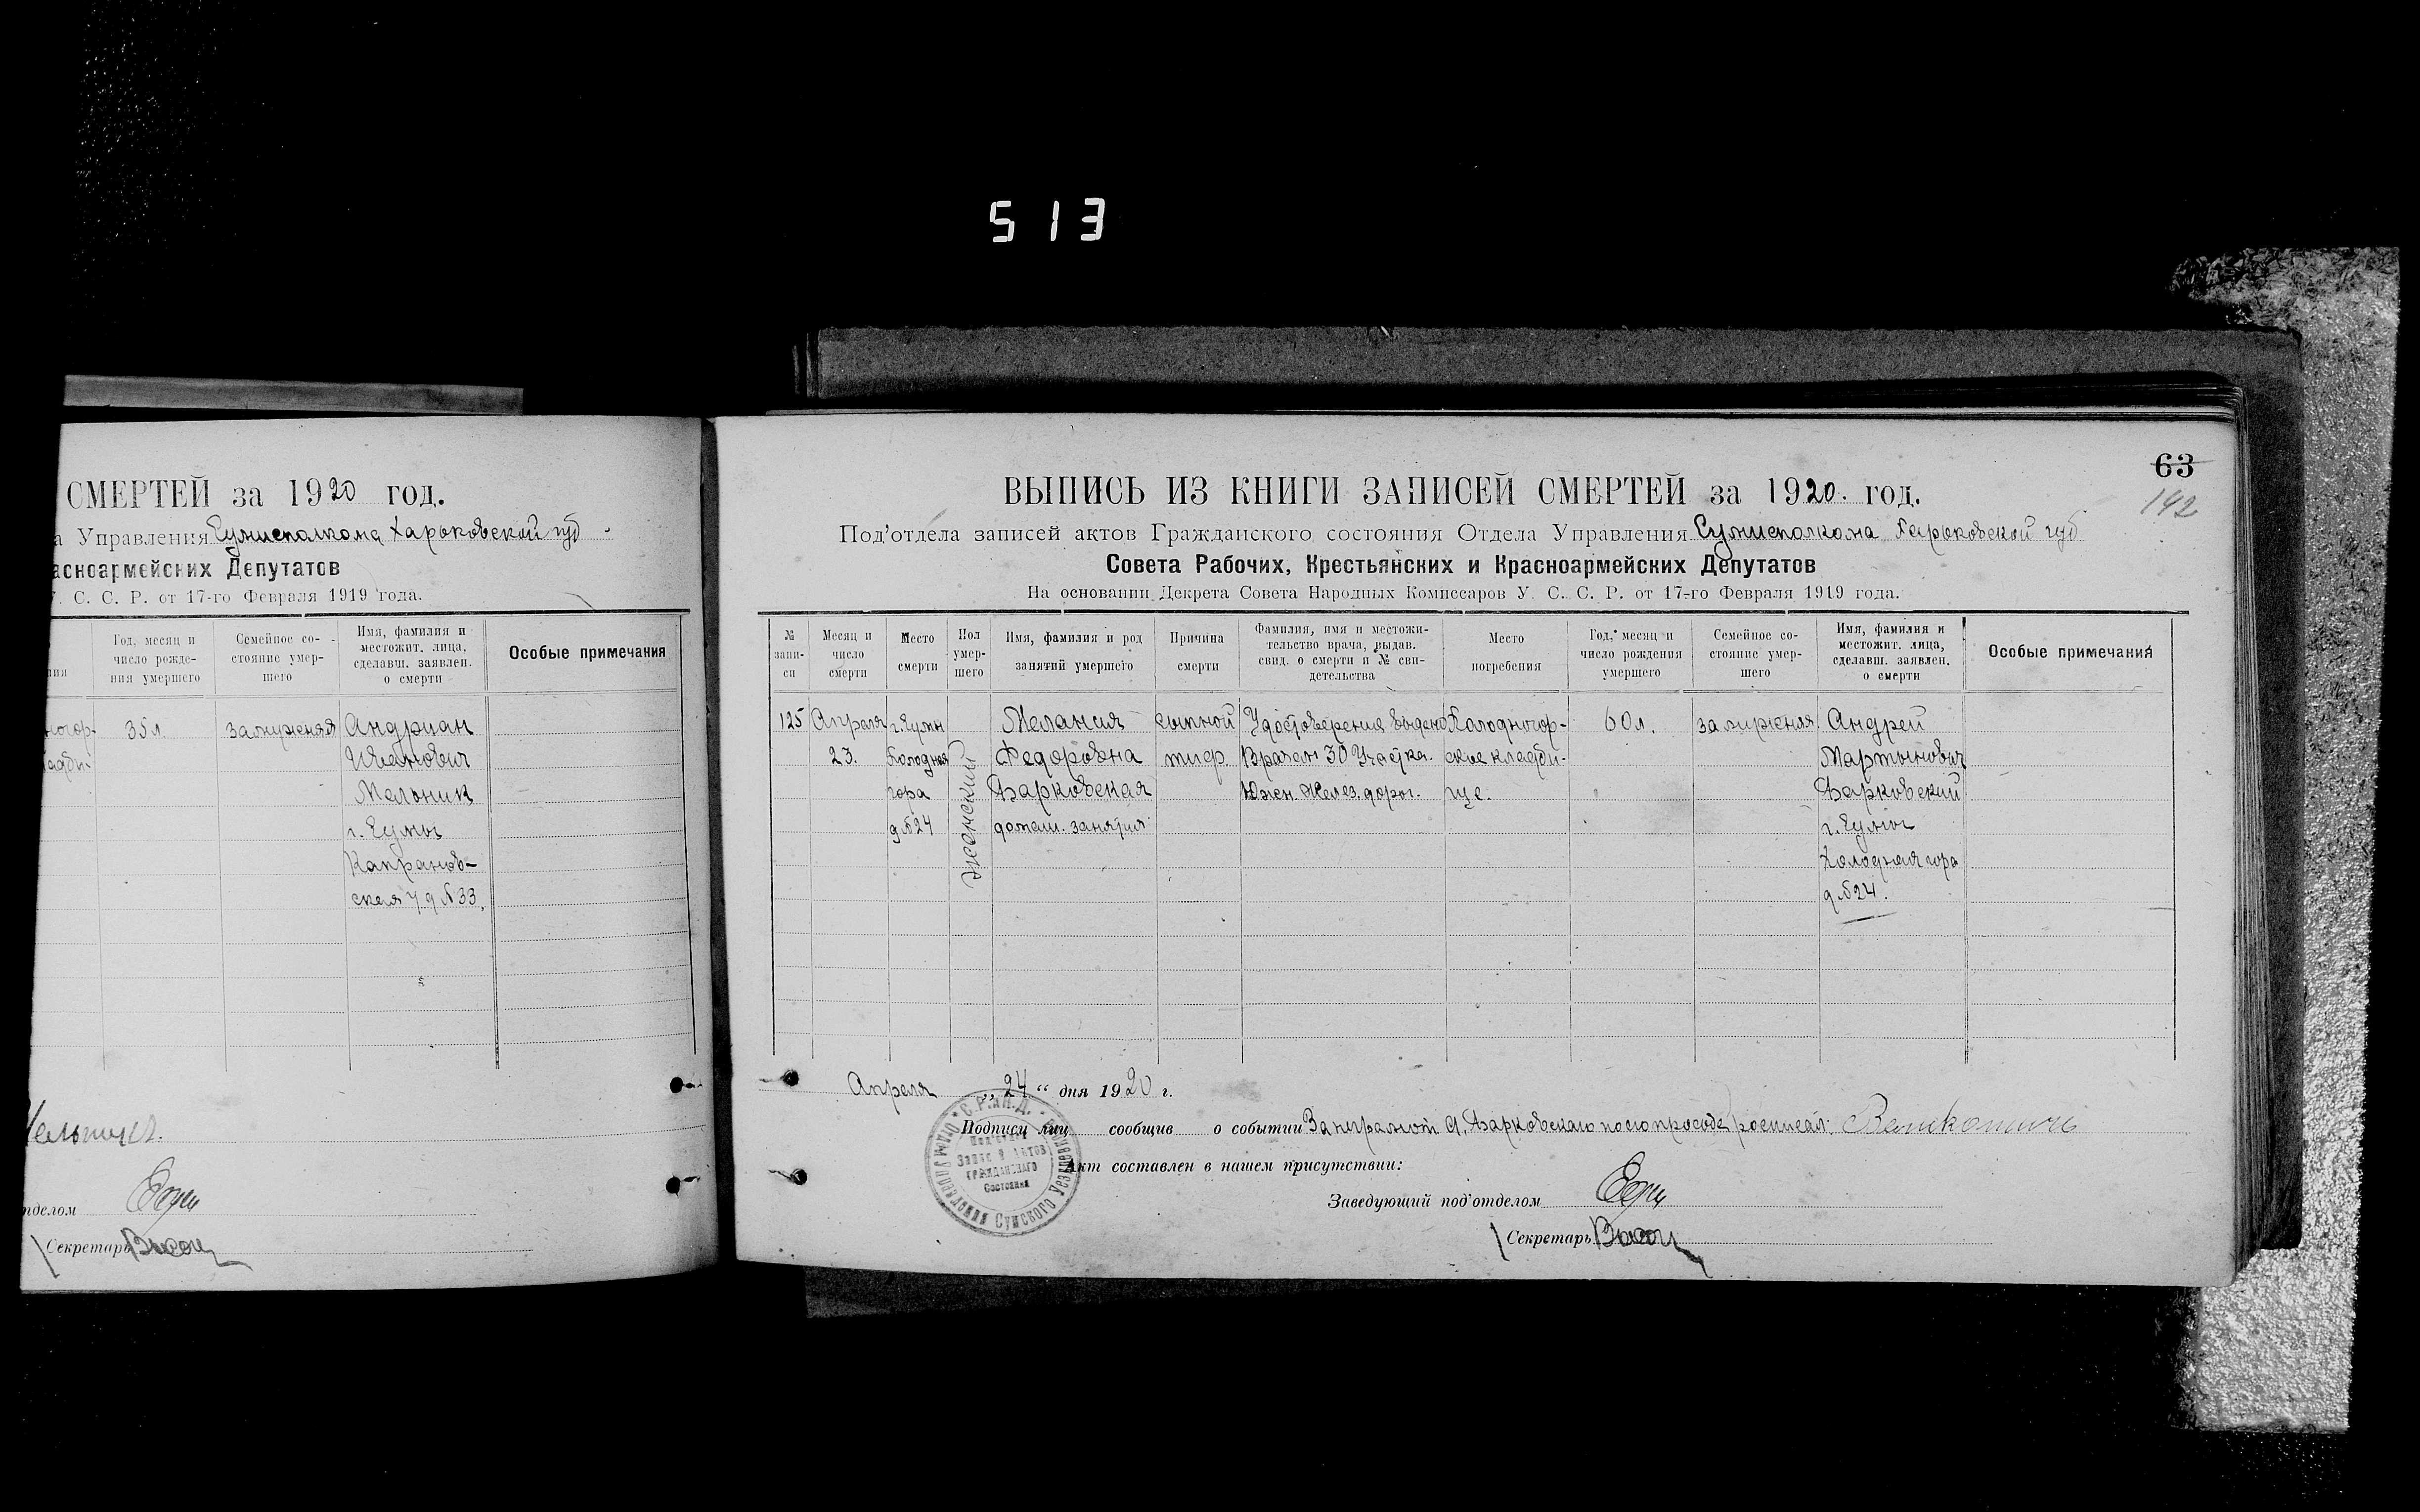 513
СМЕРТЕЙ за 1920 год.
а Управления Сумисполкома Харьковской губ.
асноармейских Депутатов
У. С. С. Р. от 17-го Февраля 1919 года.
Год, месяц и число рождения умершего
Семейное состояние умершего
Имя, фамилия и местожит. лица, сделавш. заявлен. о смерти
Особые примечания
35 л.
замужняя
Андриан
Иванович
Мельник
г. Сумы
д №33.
Секретарь
63
142
ВЫПИСЬ ИЗ КНИГИ ЗАПИСЕЙ СМЕРТЕЙ за 1920. год.
Под'отдела записей актов Гражданского состояния Отдела Управления Сумисполкома Харьковской губ
Совета Рабочих, Крестьянских и Красноармейских Депутатов
На основании Декрета Совета Народных Комиссаров У. С. С. Р. от 17-го Февраля 1919 года.
№ записи
Месяц и число смерти
Место смерти
Пол умершего
Имя, фамилия и род занятий умершего
Причина смерти
Фамилия, имя и местожительство врача, выдав. свид. о смерти и № свидетельства
Место погребения
Год, месяц и число рождения умершего
Семейное состояние умершего
Имя, фамилия и местожит. лица, сделавш. заявлен. о смерти
Особые примечания
125
Апреля
23.
г. Сумы
Холодная
гора
д №24
женский
Мелания
Федоровна
Барковская
домаш. занятия
сыпной
тиф
Удостоверение выдано
Врачем 30 Участка.
Южен. Желез. дорог.
Холодногор-
ское кладби-
ще.
60 л.
замужняя
Андрей
Мартынович
Барковский
г. Сумы
Холодная гора
д №24.
Апреля „24“ дня 1920 г.
Подписи лиц сообщив о событии За неграмот А. Барковского по его просьбе росписал:
Акт составлен в нашем присутствии:
Заведующий под'отделом
Секретарь
Под'отдел
Записи Актов
Гражданского
Состояния
Сумского Уездного